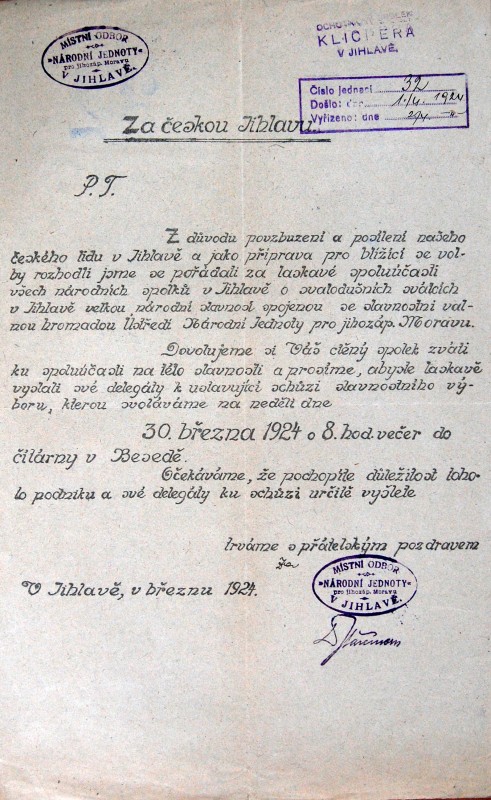 MÍSTNÍ ODBOR
»NÁRODNÍ JEDNOTY«
pro jihozáp. Moravu
V JIHLAVĚ.
OCHOTNICKÝ SPOLEK
KLICPERA
V JIHLAVĚ.
Číslo jednací 32
Došlo: dne 1./4. 1924
Vyřízeno: dne 2/4
Za českou Jihlavu.
P. T.
Z důvodu povzbuzení a posílení našeho
českého lidu v Jihlavě a jako příprava pro blížící se vol-
by rozhodli jsme se pořádati za laskavé spoluúčasti
všech národních spolků v Jihlavě o svatodušních svátcích
v Jihlavě velkou národní slavnost spojenou se slavnostní val-
nou hromadou Ústředí Národní Jednoty pro jihozáp. Moravu.
Dovolujeme si Váš ctěný spolek zváti
ku spoluúčasti na této slavnosti a prosíme, abyste laskavě
vyslali své delegáty k ustavující schůzi slavnostního vý-
boru, kterou svoláváme na neděli dne
30. března 1924 o 8. hod. večer do
čítárny v Besedě.
Očekáváme, že pochopíte důležitost toho-
to podniku a své delegáty ku schůzi určitě vyšlete
trváme s přátelským pozdravem
Za
MÍSTNÍ ODBOR
»NÁRODNÍ JEDNOTY«
pro jihozáp. Moravu
V JIHLAVĚ.
V Jihlavě, v březnu 1924.